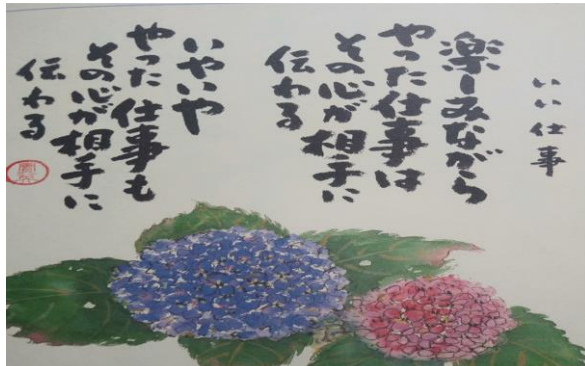 いい仕事
楽しみながら
やった仕事は
その心が相手に
伝わる
いやいや
やった仕事も
その心が相手に
伝わる